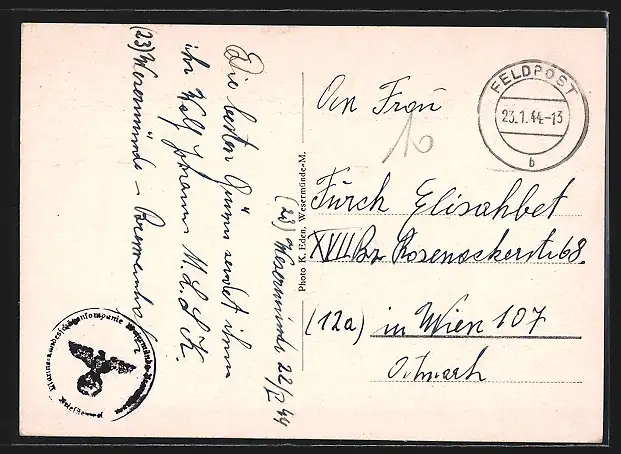 (23) Wesermünde 22/1 44
Die besten Grüsse sendet ihnen
ihr Wolf Johannes M.L.S.K.
(23) Wesermünde - Bremerhaf
Photo K. Eden, Wesermünde-M.
FELDPOST
23.1.44-13
b
An Frau
10
Fürch Elisahbet
XVII Bz Rosenackerstr 68.
(12a) in Wien 107
Ostmark
Briefstempel